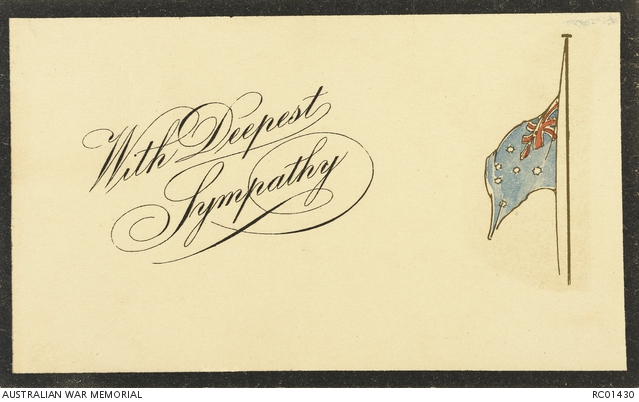 With Deepest
Sympathy
AUSTRALIAN WAR MEMORIAL
RC01430